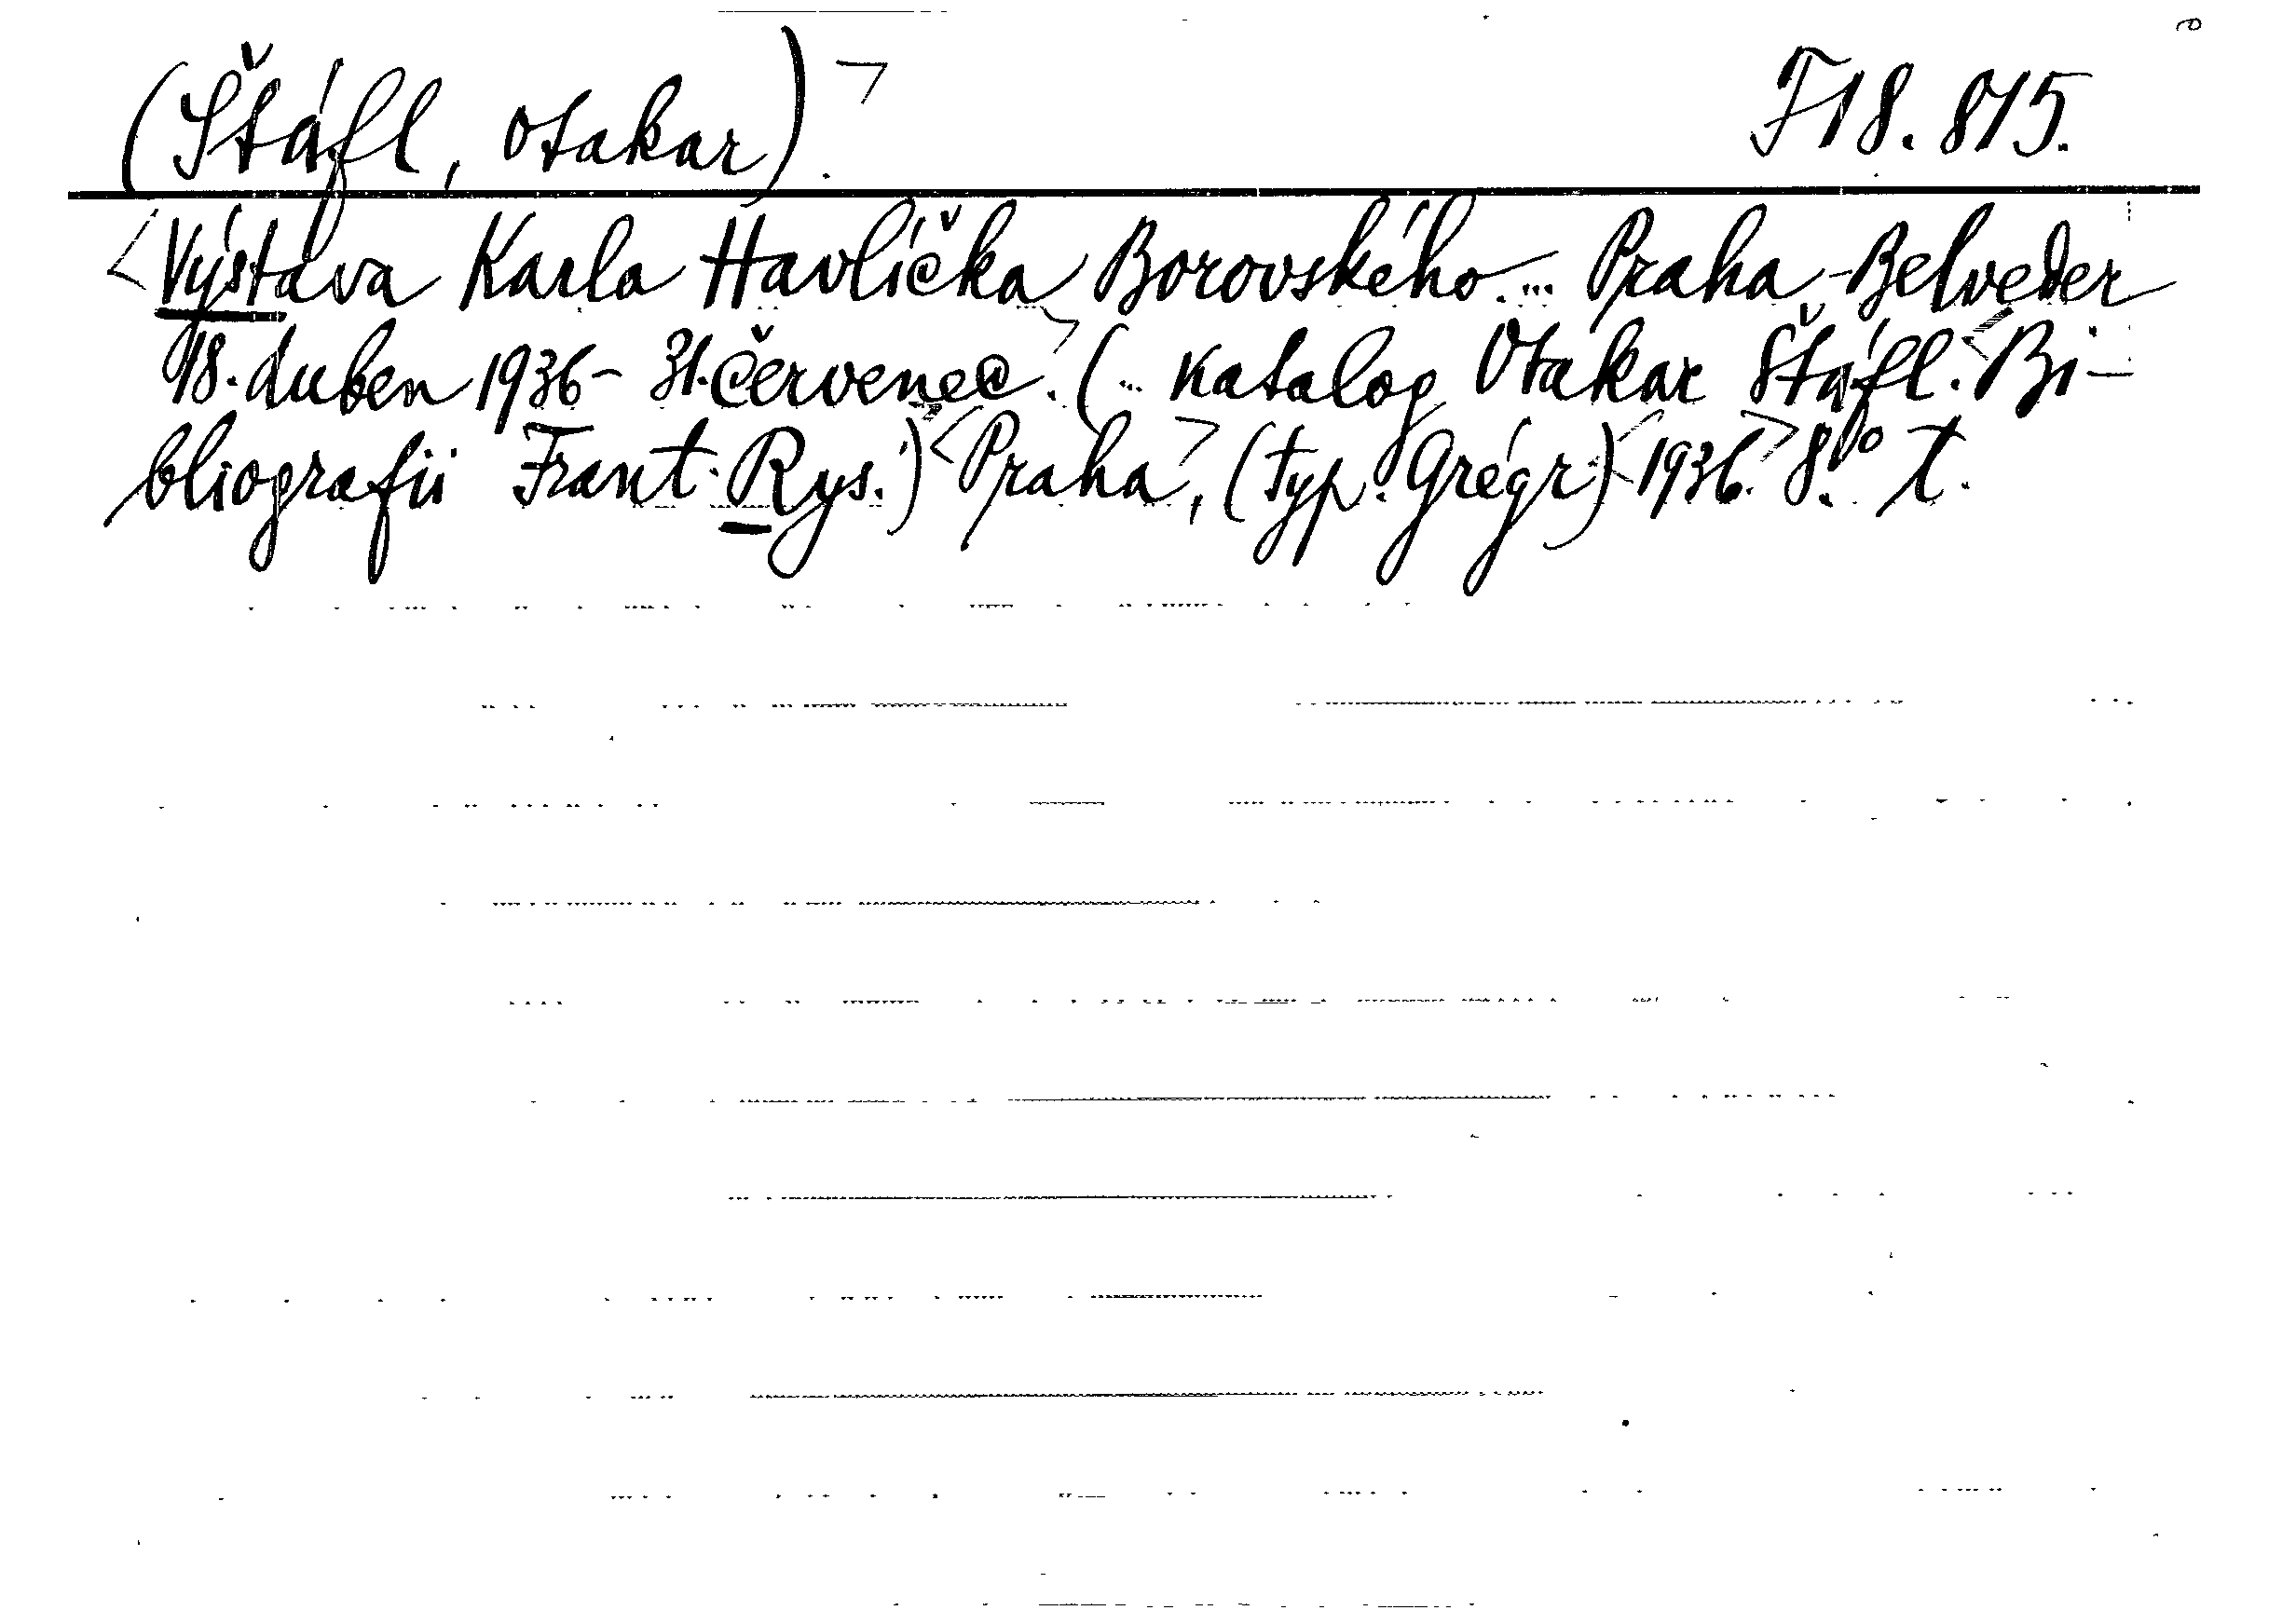 (Štáfl, Otakar).> F 18.815.
<Výstava Karla Havlíčka Borovského... Praha-Belveder
18. duben 1936 - 31. červenec.> (... katalog Otakar Štáfl. <Bi-
bliografii Frant. Rys.) <Praha>, (typ. Grégr) <1936.> 8.vo t.